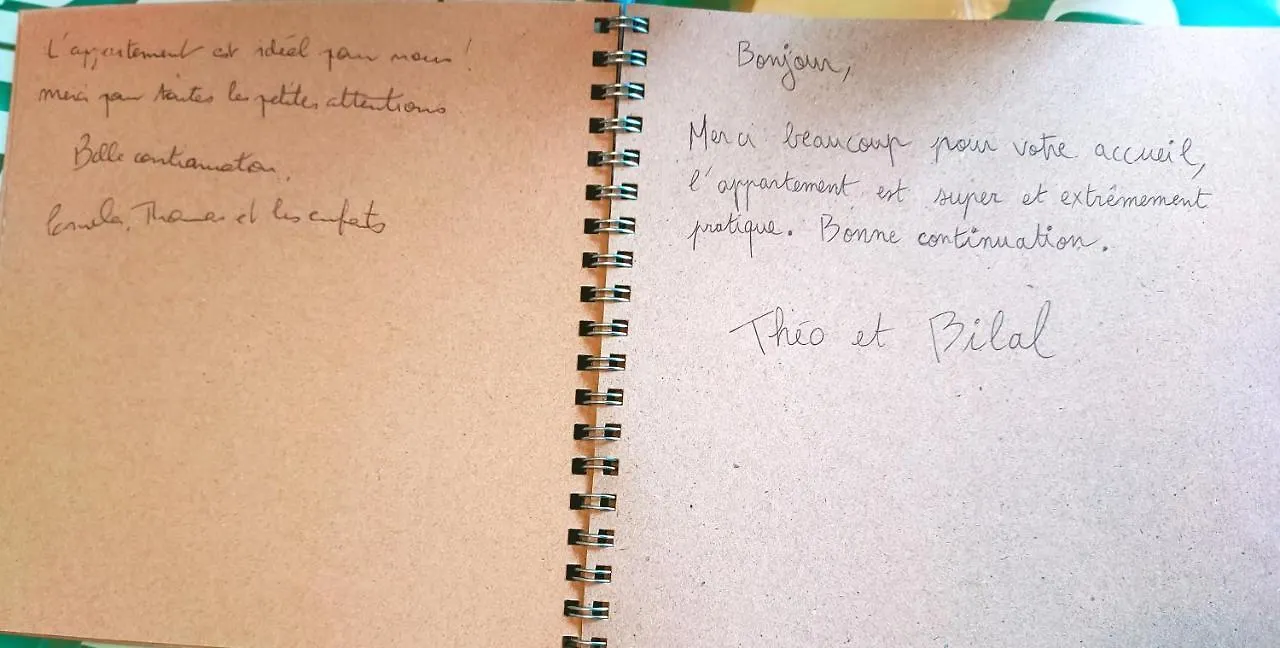 L'appartement est idéal pour nous !
merci pour toutes les petites attentions
Belle continuation,
Thomas et les enfants
Bonjour,
Merci beaucoup pour votre accueil,
l'appartement est super et extrêmement
pratique. Bonne continuation.
Théo et Bilal